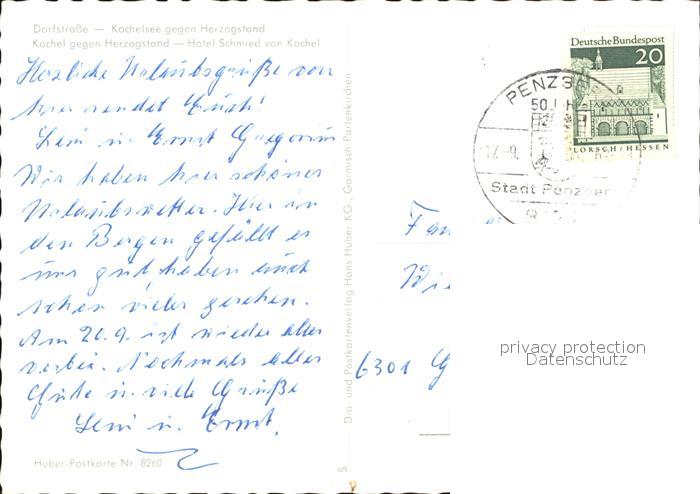 Dorfstraße — Kochelsee gegen Herzogstand
Kochel gegen Herzogstand — Hotel Schmied von Kochel
Herzliche Urlaubsgrüße von
hier sendet Euch!
Leni u. Ernst Gregorius
Wir haben hier schönes
Urlaubswetter. Hier in
den Bergen gefällt es
uns gut haben auch
schon vieles gesehen.
Am 20.9. ist wieder alles
vorbei. Nochmals alles
Gute u. viele Grüße
Leni u. Ernst.
Huber-Postkarte Nr. 8260
Dia- und Postkartenverlag Hans Huber KG., Garmisch-Partenkirchen
S
Deutsche Bundespost
20
LORSCH/HESSEN
PENZB
50 J
Stadt Penzber
Fam
Wi
6301 G
privacy protection
Datenschutz